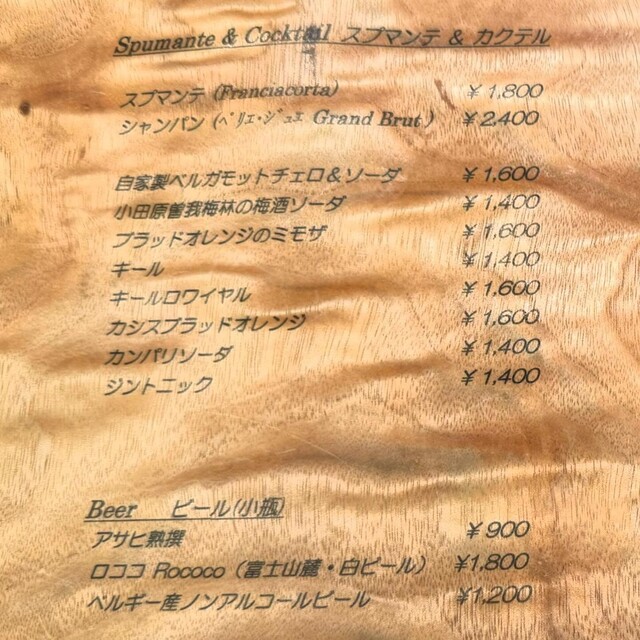 Spumante & Cocktail スプマンテ & カクテル
スプマンテ (Franciacorta) ¥1,800
シャンパン (ﾍﾟﾘｴ･ｼﾞｭｴ Grand Brut ) ¥2,400
自家製ベルガモットチェロ＆ソーダ ¥1,600
小田原曽我梅林の梅酒ソーダ ¥1,400
ブラッドオレンジのミモザ ¥1,600
キール ¥1,400
キールロワイヤル ¥1,600
カシスブラッドオレンジ ¥1,600
カンパリソーダ ¥1,400
ジントニック ¥1,400
Beer ビール(小瓶)
アサヒ熟撰 ¥900
ロココ Rococo（富士山麓・白ビール） ¥1,800
ベルギー産ノンアルコールビール ¥1,200